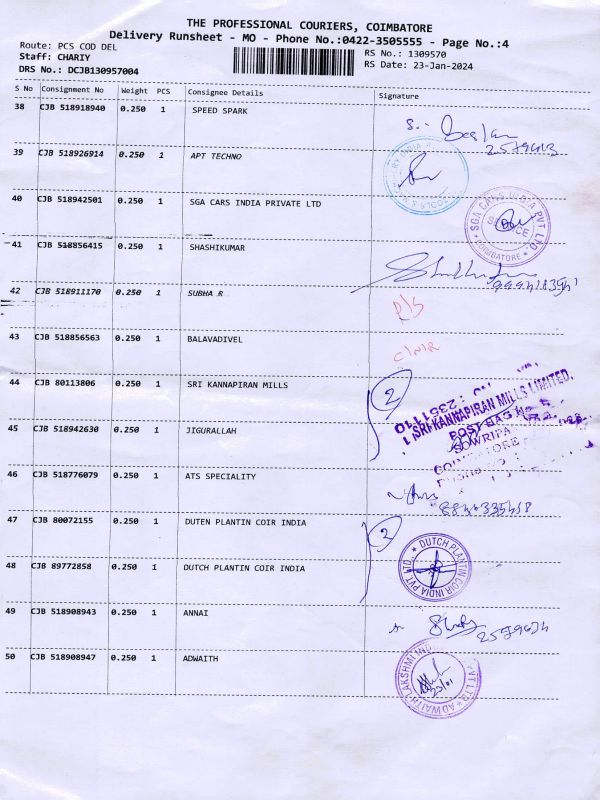 THE PROFESSIONAL COURIERS, COIMBATORE
Delivery Runsheet - MO - Phone No.:0422-3505555 - Page No.:4
Route: PCS COD DEL
RS No.: 1309570
Staff: CHARIY
RS Date: 23-Jan-2024
DRS No.: DCJB130957004
S No Consignment No Weight PCS Consignee Details Signature
38 CJB 518918940 0.250 1 SPEED SPARK
39 CJB 518926914 0.250 1 APT TECHNO
40 CJB 518942501 0.250 1 SGA CARS INDIA PRIVATE LTD
SGA CARS INDIA PVT LTD.
COIMBATORE
41 CJB 518856415 0.250 1 SHASHIKUMAR
42 CJB 518911170 0.250 1 SUBHA R
43 CJB 518856563 0.250 1 BALAVADIVEL
44 CJB 80113806 0.250 1 SRI KANNAPIRAN MILLS
2
SRI KANNAPIRAN MILLS LIMITED.
POST BAG
SOWRIPA
45 CJB 518942630 0.250 1 JIGURALLAH
46 CJB 518776079 0.250 1 ATS SPECIALITY
47 CJB 80072155 0.250 1 DUTEN PLANTIN COIR INDIA
2
DUTCH PLANTIN COIR INDIA PVT LTD.
48 CJB 89772858 0.250 1 DUTCH PLANTIN COIR INDIA
49 CJB 518908943 0.250 1 ANNAI
50 CJB 518908947 0.250 1 ADWAITH
ADWAITH LAKSHMI IND PVT LTD
23/01